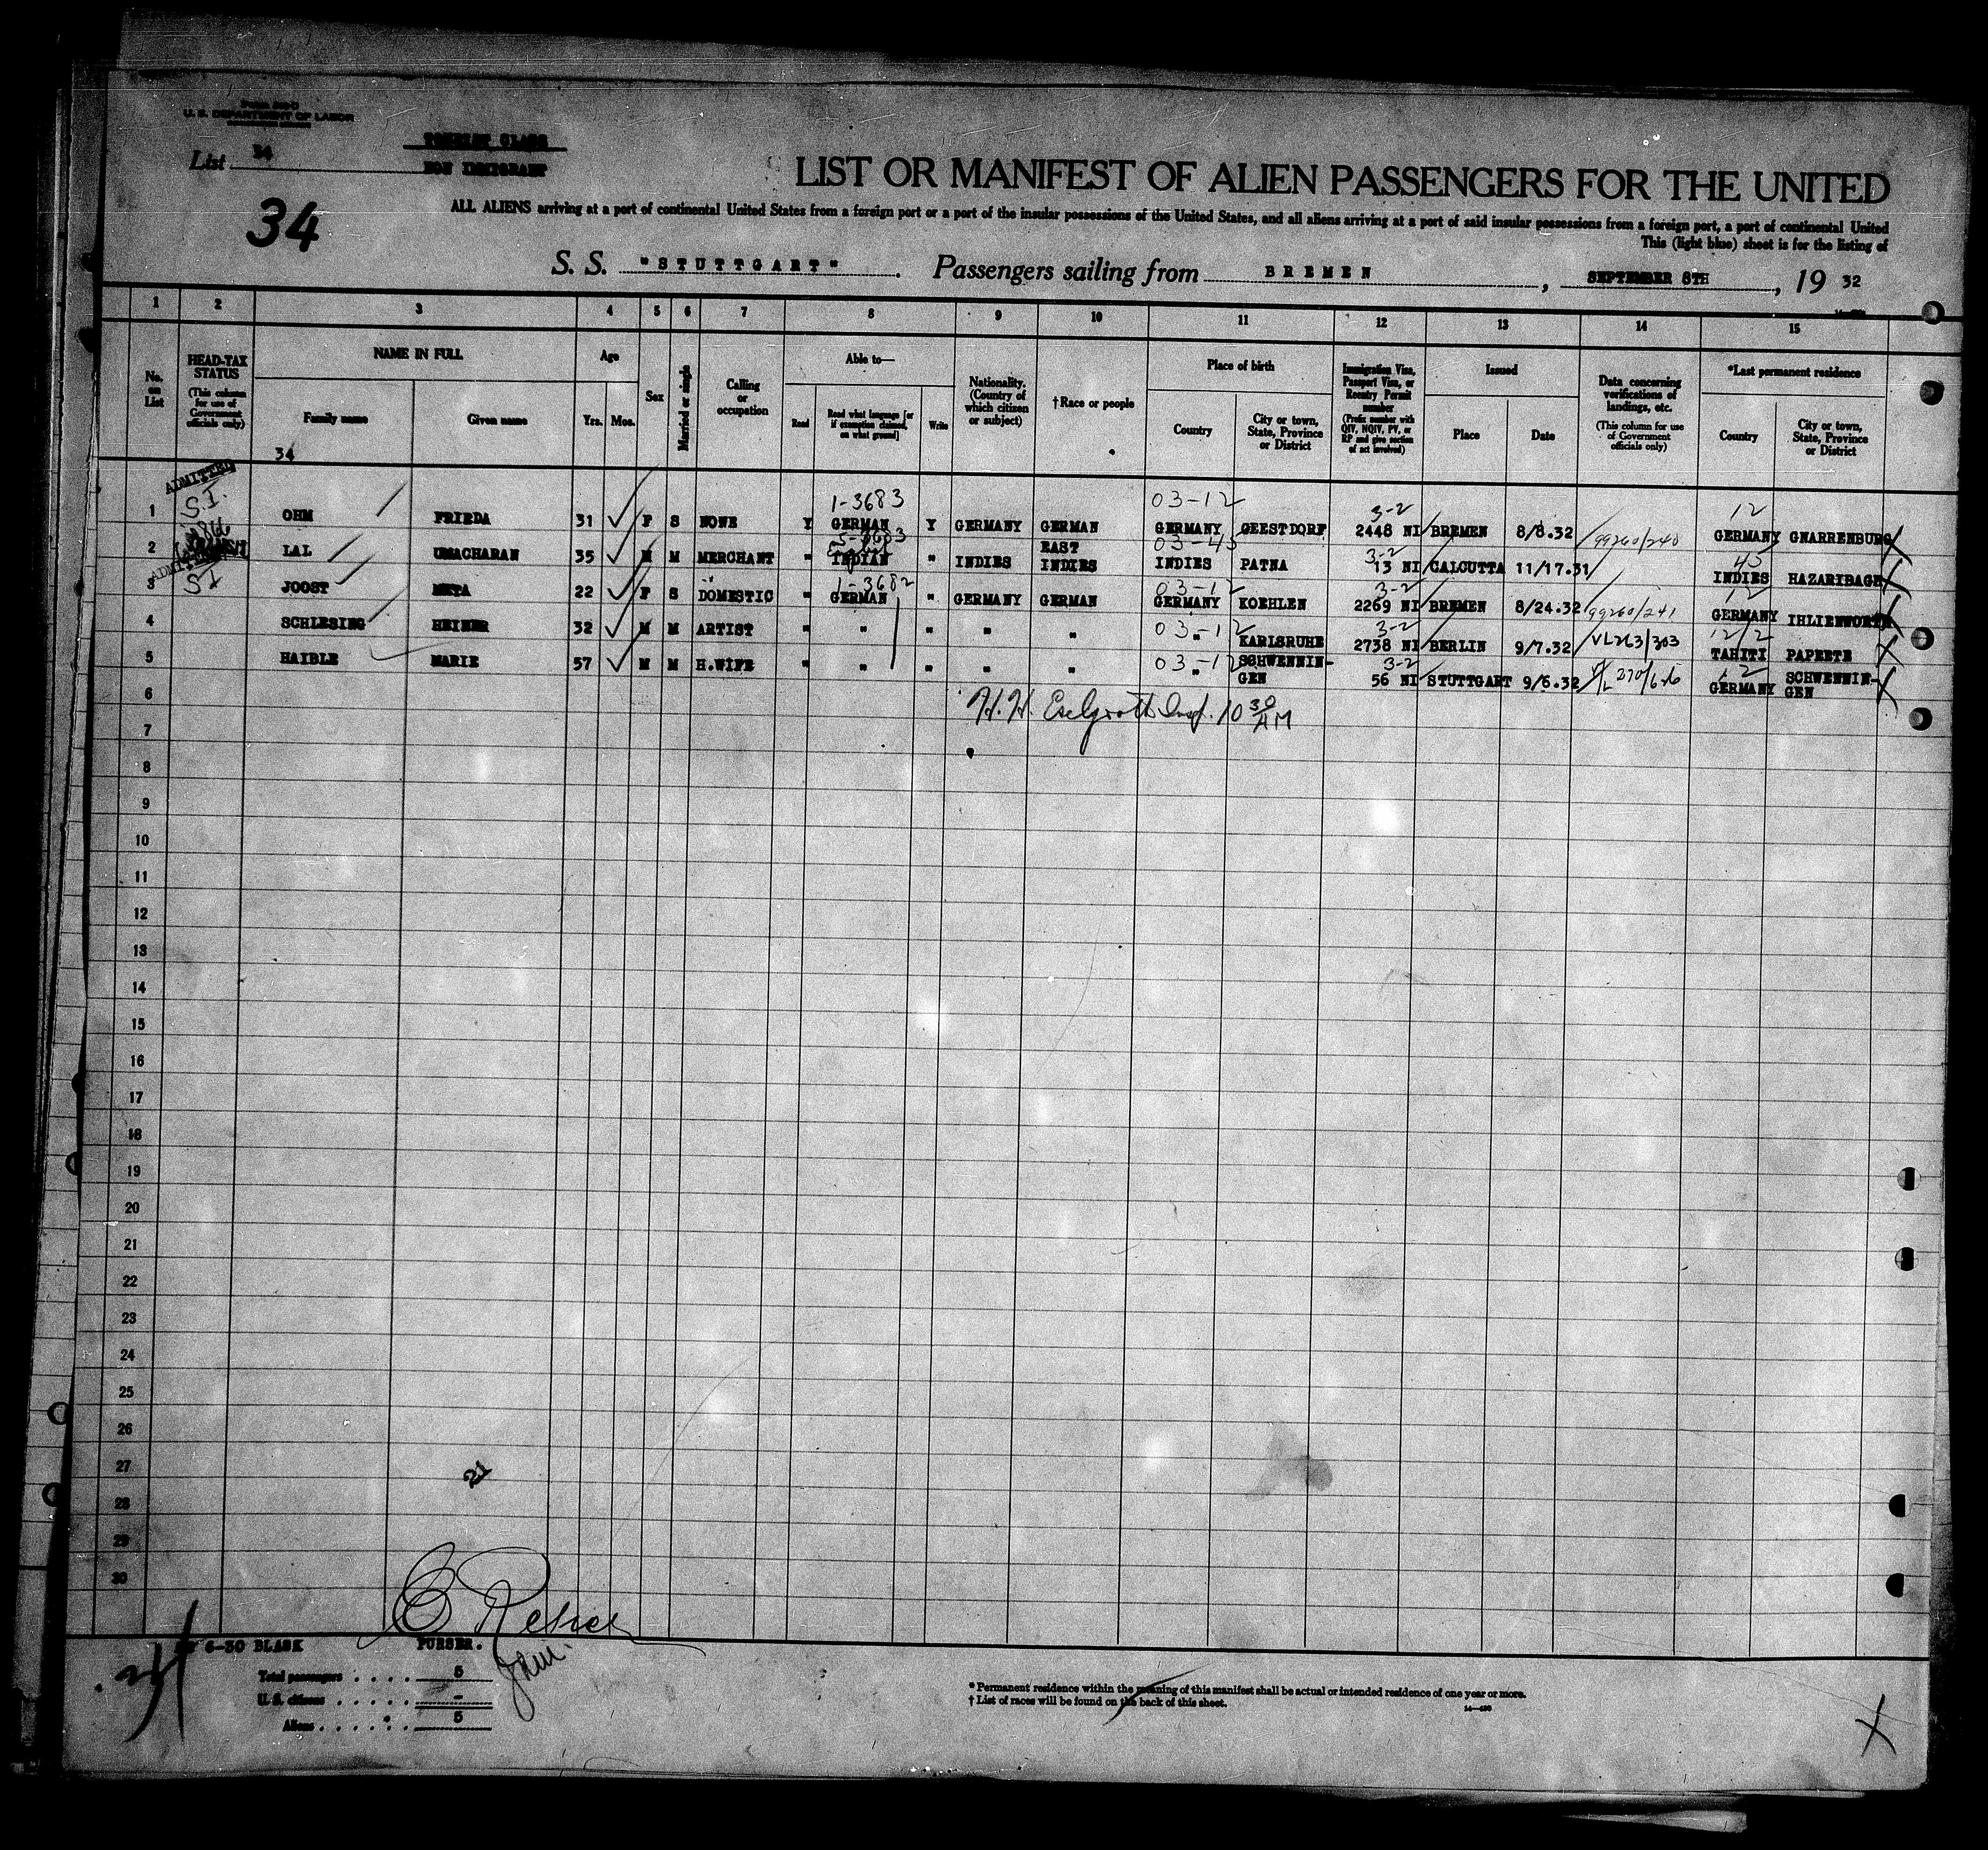 Form 500-D
U. S. DEPARTMENT OF LABOR
List 34
TOURIST CLASS
NON IMMIGRANT
34
LIST OR MANIFEST OF ALIEN PASSENGERS FOR THE UNITED
ALL ALIENS arriving at a port of continental United States from a foreign port or a port of the insular possessions of the United States, and all aliens arriving at a port of said insular possessions from a foreign port, a port of continental United
This (light blue) sheet is for the listing of
S. S. "STUTTGART". Passengers sailing from BREMEN, SEPTEMBER 8TH, 19 32
1 2 3 4 5 6 7 8 9 10 11 12 13 14 15
No. on List
HEAD-TAX STATUS (This column for use of Government officials only)
NAME IN FULL
Family name Given name
34
Age Yrs. Mos.
Sex
Married or single
Calling or occupation
Able to— Read Read what language [or if exemption claimed, on what ground] Write
Nationality. (Country of which citizen or subject)
†Race or people
Place of birth Country City or town, State, Province or District
Immigration Visa, Passport Visa, or Reentry Permit number (Prefix number with QIV, NQIV, PV, or RP and give section of act involved)
Issued Place Date
Data concerning verifications of landings, etc. (This column for use of Government officials only)
*Last permanent residence Country City or town, State, Province or District
ADMITTED S.I. 1-3683 03-12 3-2 12
1 OHM FRIEDA 31 F S NONE Y GERMAN Y GERMANY GERMAN GERMANY GEESTDORF 2448 NI BREMEN 8/8.32 99260/240 GERMANY GNARRENBURG
03-43 3-2 45
2 LAL UMACHARAN 35 M M MERCHANT " INDIAN " INDIES EAST INDIES INDIES PATNA 13 NI CALCUTTA 11/17.31 INDIES HAZARIBAGH
ADMITTED SI 1-3682 03-12 3-2 12
3 JOOST META 22 F S DOMESTIC " GERMAN " GERMANY GERMAN GERMANY KOEHLEN 2269 NI BREMEN 8/24.32 99260/241 GERMANY IHLIENWORTH
03-12 3-2
4 SCHLESING HEINER 32 M M ARTIST " " " " " " KARLSRUHE 2738 NI BERLIN 9/7.32 VL263/303 TAHITI PAPEETE
03-12 3-2 12
5 HAIBLE MARIE 57 M M H.WIFE " " " " " " SCHWENNINGEN 56 NI STUTTGART 9/6.32 GERMANY SCHWENNINGEN
10 30 AM
6
7
8
9
10
11
12
13
14
15
16
17
18
19
20
21
22
23
24
25
26
27
28
29
30
21
6-30 BLASK PURSER.
Total passengers . . . . 5
U. S. citizens . . . . . -
Aliens . . . . . . 5
* Permanent residence within the meaning of this manifest shall be actual or intended residence of one year or more.
† List of races will be found on the back of this sheet.